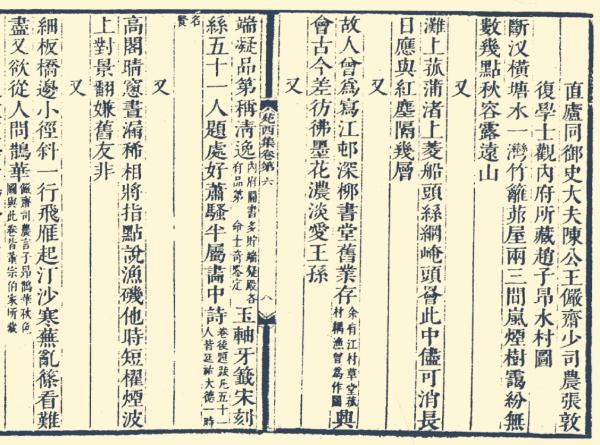 直廬同御史大夫陳公王儼齋少司農張敦
復學士觀內府所藏趙子昂水村圖
斷汊橫塘水一灣竹籬茆屋兩三間嵐煙樹靄紛無
數幾點秋容露遠山
又
灘上菰蒲渚上菱船頭絲網崦頭罾此中儘可消長
日應與紅塵隔幾層
又
故人曾爲寫江邨深柳書堂舊業存余有江村草堂菰村耦漁曾爲作圖興
會古今差彷彿墨花濃淡愛王孫
又
苑西集卷第六 八
端凝品第稱淸逸內府圖書多貯端凝殿各有品第命士奇鑒定玉軸牙籤宋刻
絲五十一人題處好蕭騷半屬畵中詩卷後題跋凡五十一人皆延祐大德一時
名賢
又
高閣晴窻晝漏稀相將指點說漁磯他時短櫂煙波
上對景翻嫌舊友非
又
細板橋邊小徑斜一行飛雁起汀沙寒蕪亂篠看難
盡又欲從人問鵲華儼齋司農言子昂鵲華秋色圖與此卷皆董宗伯家所藏